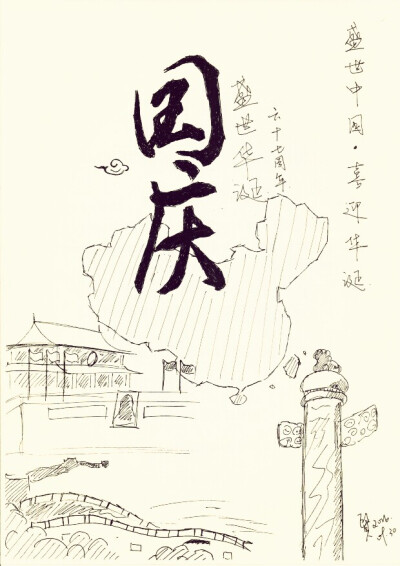 盛世中国·喜迎华诞
六十七周年
盛世华诞
国庆